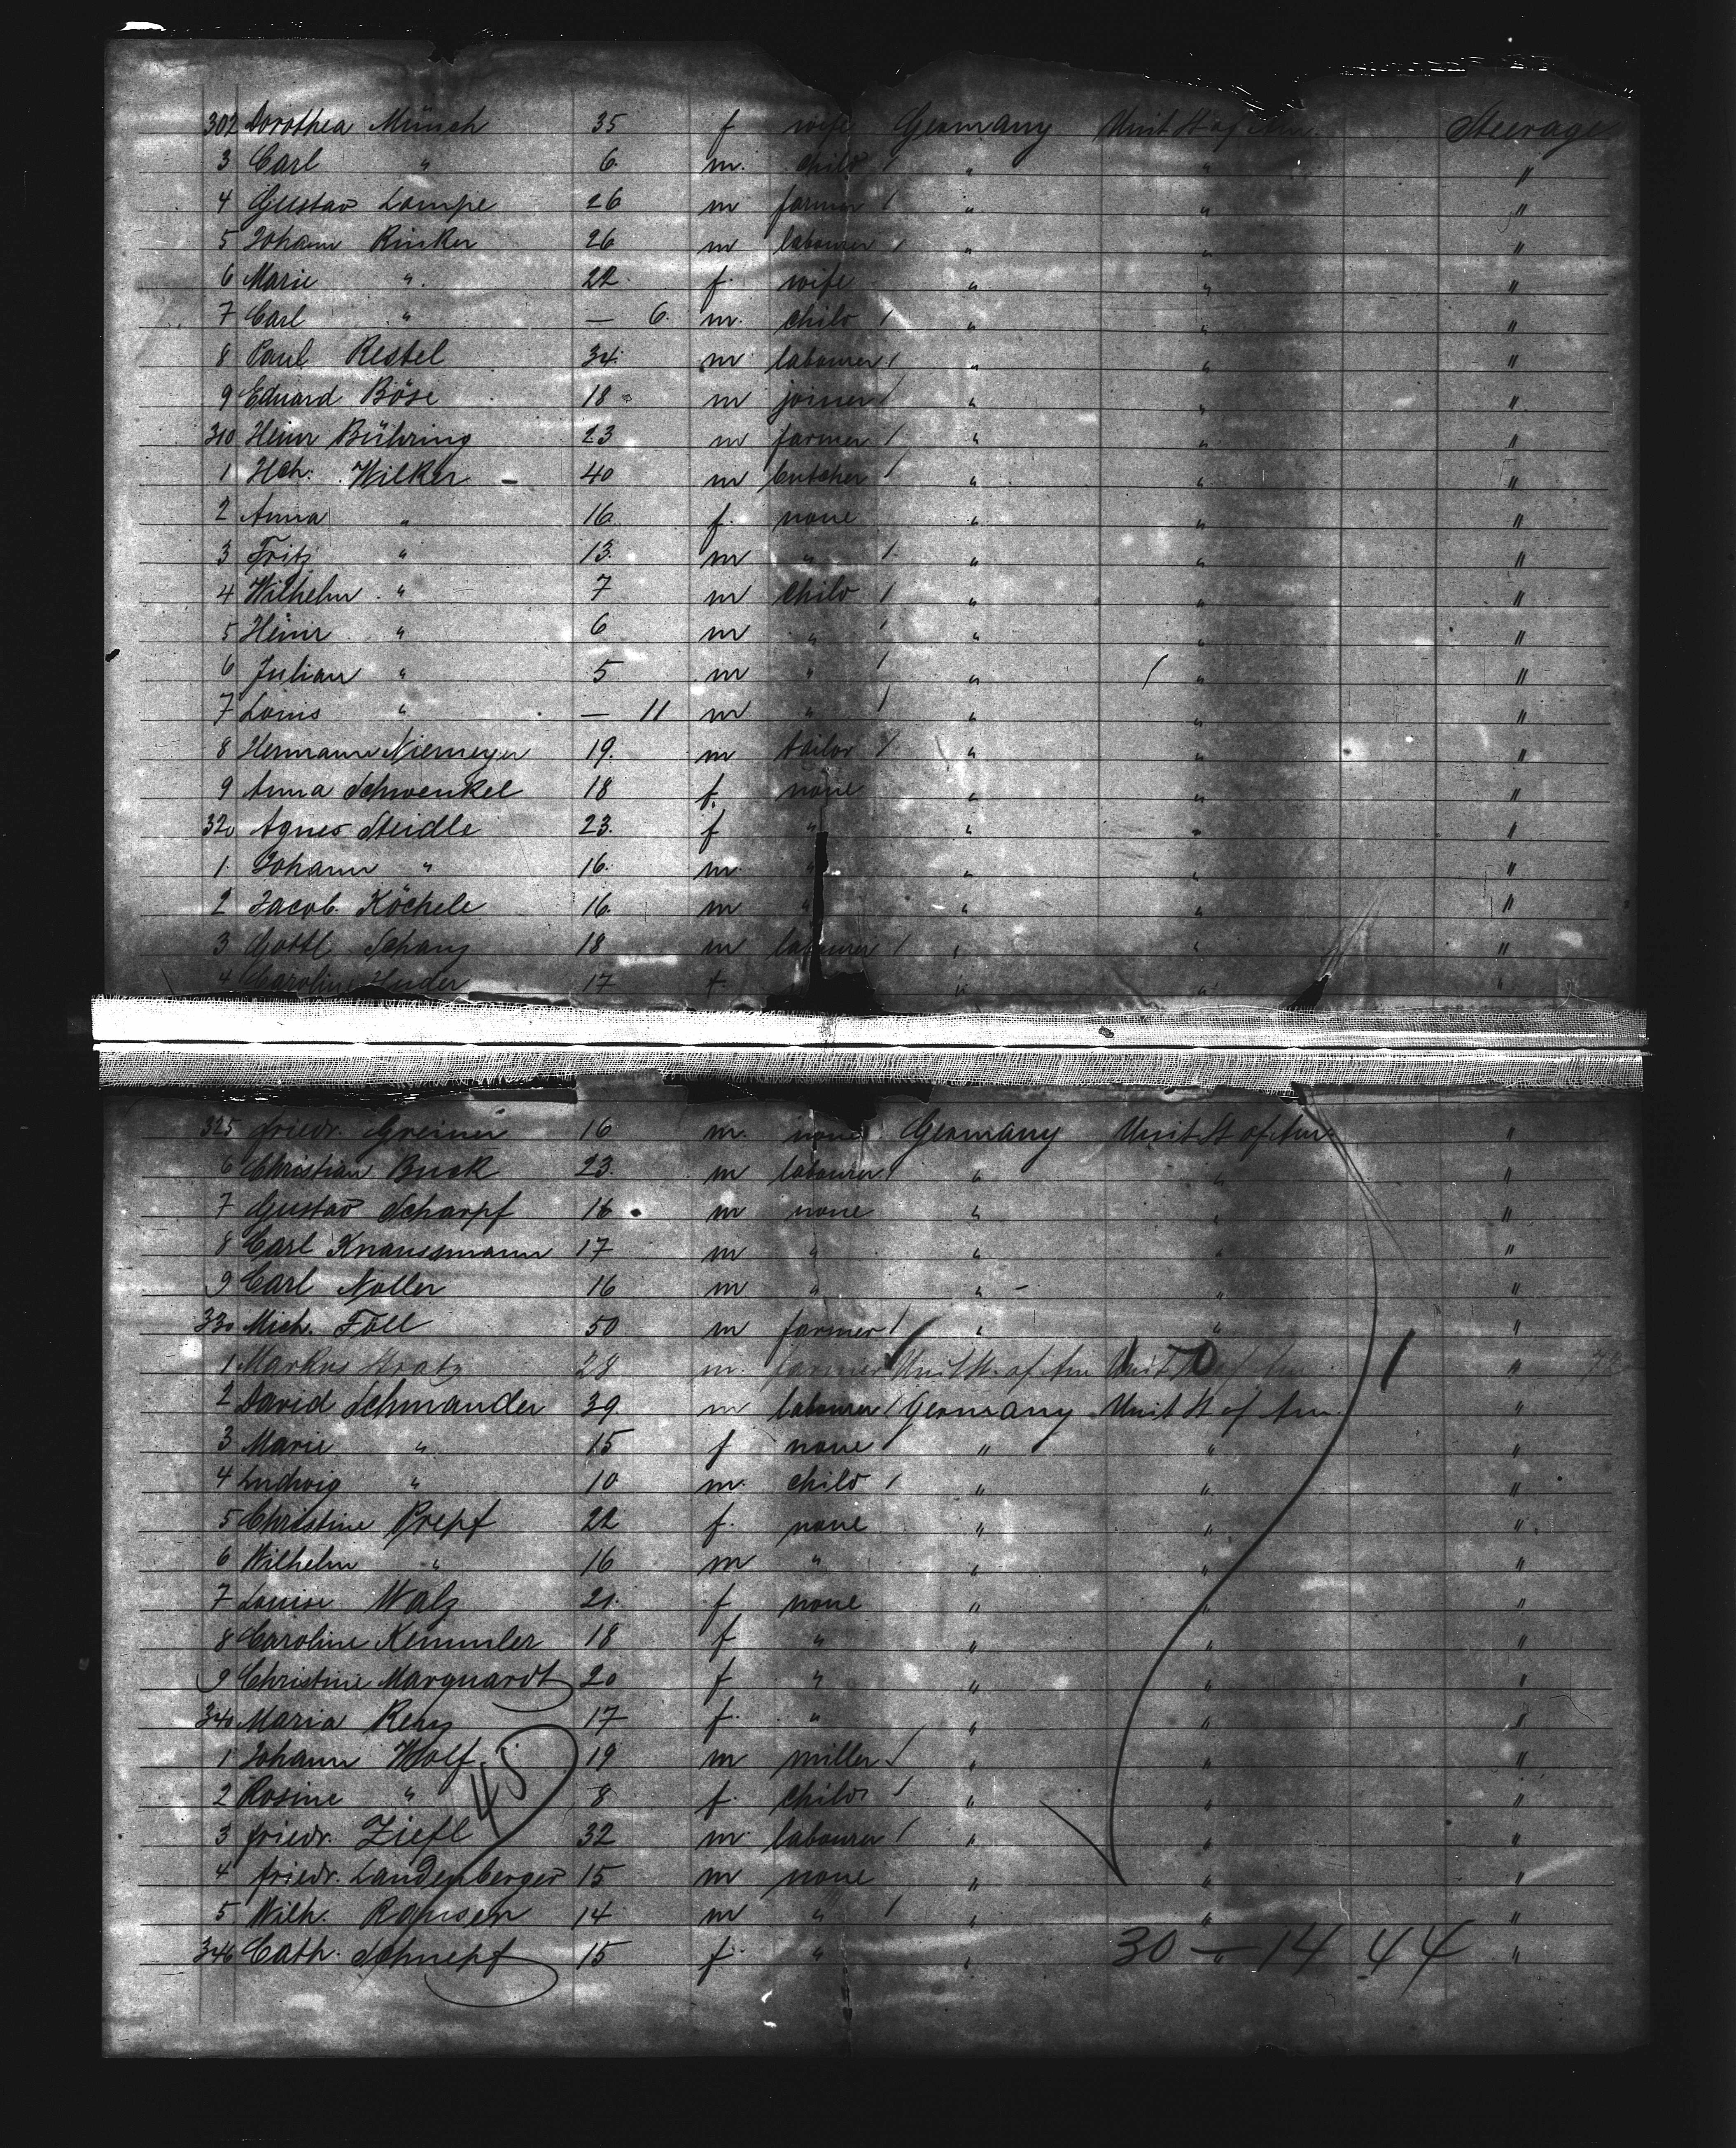 302 Dorothea Münch 35 f wife Germany Unit St of Am. Steerage
3 Carl " 6 m. child / " " "
4 Gustav Lampe 26 m farmer / " " "
5 Johann Rinker 26 m labourer / " " "
6 Marie " 22 f. wife " " "
7 Carl " — 6. m. child / " " "
8 Paul Restel 34. m labourer / " " "
9 Eduard Böse 18 m joiner / " " "
310 Heinr Bühring 23 m farmer / " " "
1 Hch. Wilker - 40 m butcher / " " "
2 Anna " 16 f. none " " "
3 Fritz " 13 m " / " " "
4 Wilhelm " 7 m child / " " "
5 Heinr " 6 m " / " " "
6 Julian " 5 m " / " / " "
7 Louis " — 11 m " / " " "
8 Hermann Niemeyer 19. m tailor / " " "
9 Anna Schwenkel 18 f. none " " "
320 Agnes Steidle 23. f " " " "
1. Johann " 16. m. " " " "
2 Jacob Köchele 16. m " " " "
3 Gottl. Schanz 18 m labourer / " " "
4 Caroline 17 f. " " "
325 Friedr. Greiner 16 m. none Germany Unit St of Am. "
6 Christian Buck 23. m labourer / " " "
7 Gustav Scharpf 16 m none " " "
8 Carl Knaussmann 17 m " " " "
9 Carl Noller 16 m " " - " "
330 Mich. Föll 50 m farmer / " " "
1 Markus Stratz 28 m. farmer Unit St. of Am Unit St of Am "
2 David Schmander 39. m labourer / Germany Unit St of Am. "
3 Marie " 15 f none " " "
4 Ludwig " 10 m. child / " " "
5 Christine Prepf 22 f. none " " "
6 Wilhelm " 16 m " " " "
7 Louise Walz 21. f none " " "
8 Caroline Kemmler 18 f " " " "
9 Christine Marquardt 20 f " " " "
340 Maria Renz 17 f. " " " "
1 Johann Wolf 19 m miller / " " "
2 Rosine " 8 f. child / " " "
45
3 Friedr. Ziefl 32 m labourer / " " "
4 Friedr. Landenberger 15 m none " " "
5 Wilh. 14 m " / " " "
346 Cath. Schnepf 15 f. " " " "
30 — 14 44